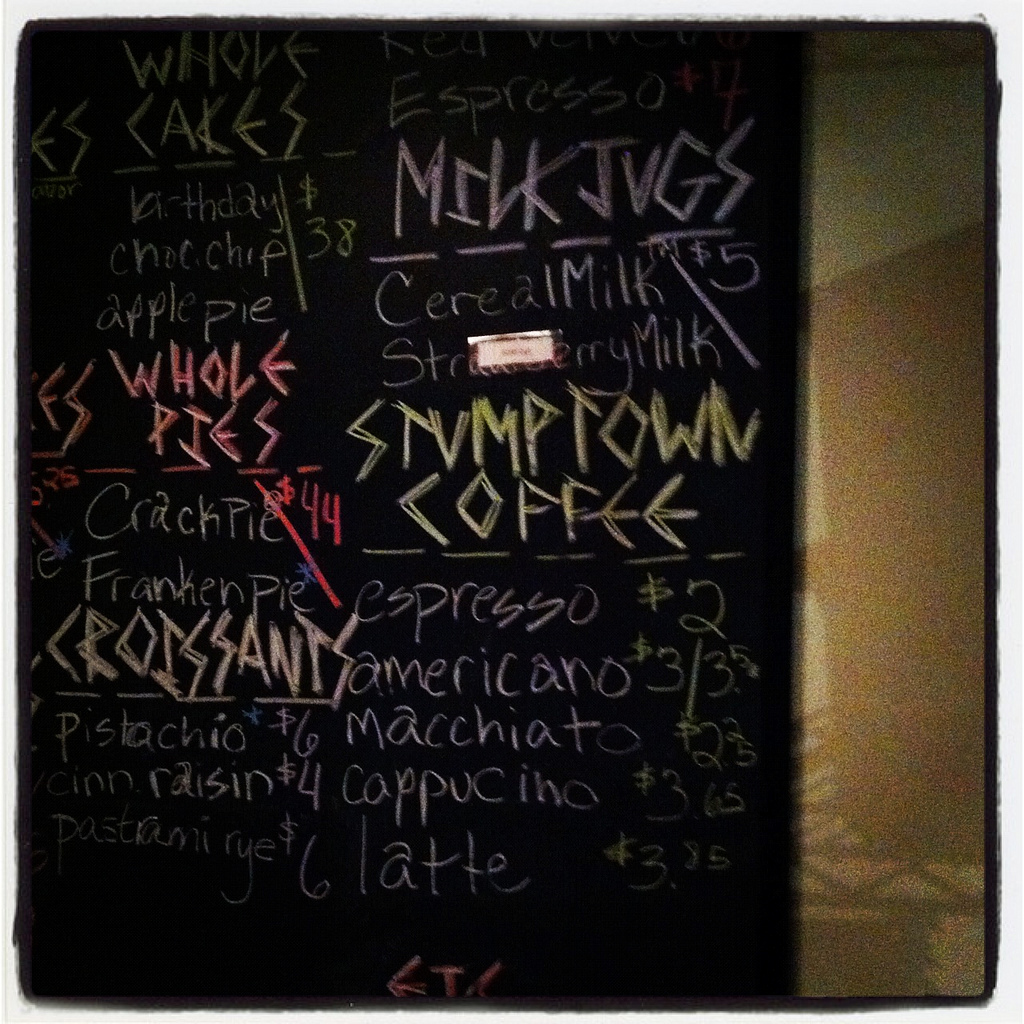 WHOLE
CAKES
birthday $
choc.chip 38
apple pie
WHOLE
PIES
Crack Pie $44
Frankenpie*
CROISSANTS
pistachio* $6
cinn. raisin $4
pastrami rye $6
Red Velvet
Espresso $4
MILK JUGS
Cereal Milk ™ $5
Milk
STUMPTOWN
COFFEE
espresso $2
americano $3/3.5
macchiato $2.25
cappucino $3.65
latte $3.85
ETC